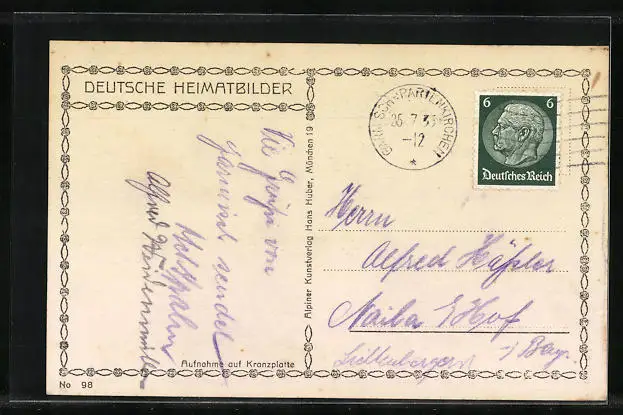 DEUTSCHE HEIMATBILDER
Viele Grüße von
Garmisch sendet
Alfred
Aufnahme auf Kranzplatte
No 98
Alpiner Kunstverlag Hans Huber, München 19
GARMISCH-PARTENKIRCHEN
26.7.33
-12
*
6 6
Deutsches Reich
Herrn
Alfred Häßler
Naila b/Hof
Bay.